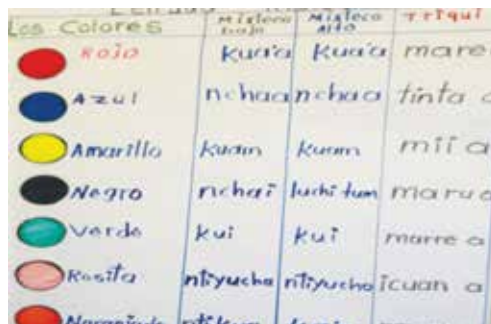 Los Colores Mixteco bajo Mixteco Alto Triqui
Rojo kua'a kua'a mare
Azul nchaa nchaa tinta
Amarillo kuam kuam mii a
Negro nchai luchi tum marua
Verde kui kui marre a
Rosita ntiyucha ntiyucha icuan a